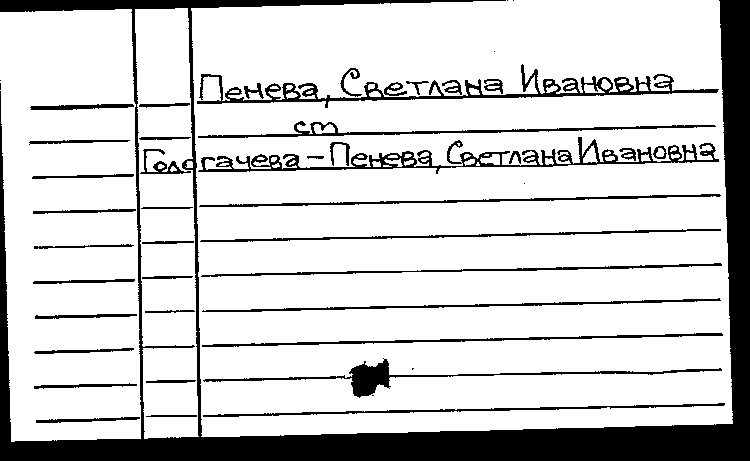 Пенева, Светлана Ивановна
ст
Гологачева - Пенева, Светлана Ивановна